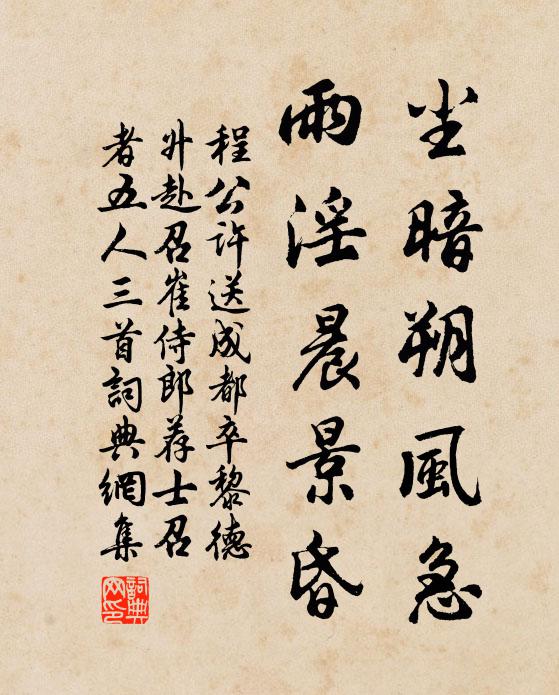 尘暗朔風急
雨淫晨景昏
程公許送成都卒黎德
升赴召崔侍郎荐士召
者五人三首詞典網集
詞典
网印